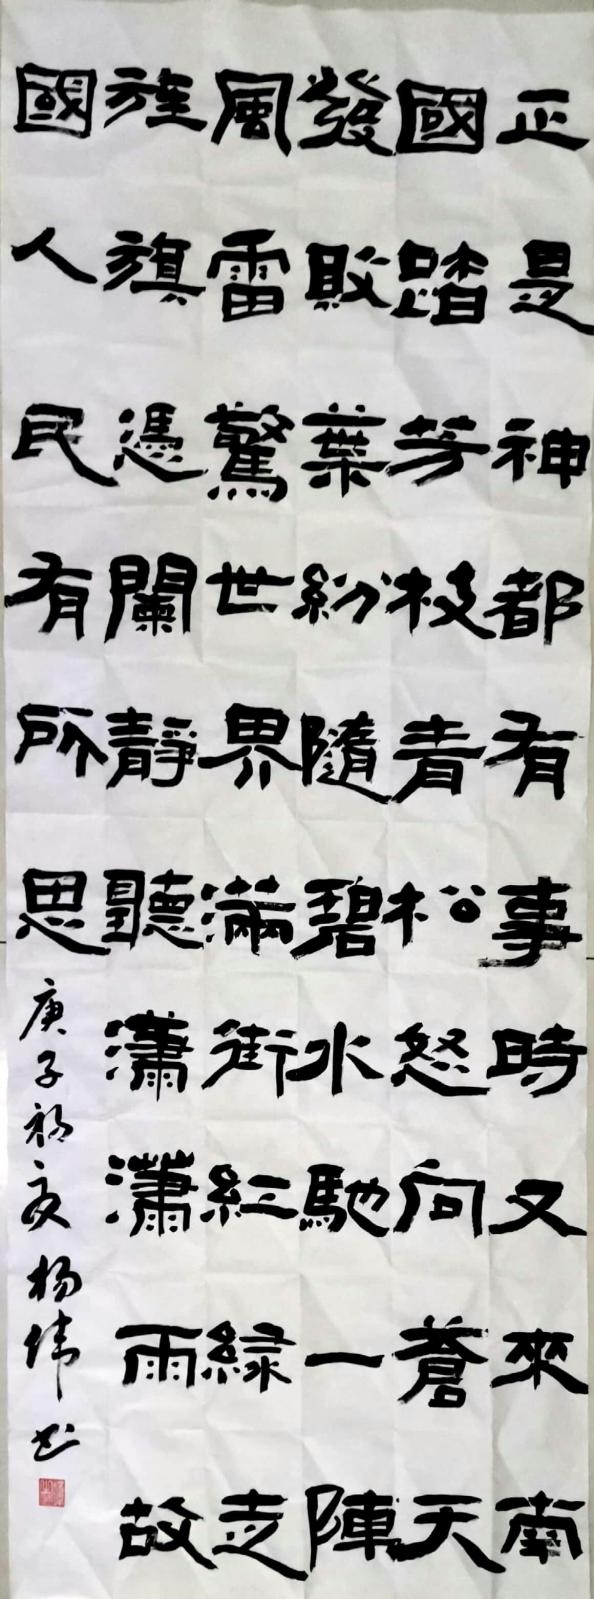 正是神都有事時又來南
國踏芳枝青松怒向蒼天
發敗葉紛隨碧水馳一陣
風雷驚世界滿街紅綠走
旌旗憑闌靜聽瀟瀟雨故
國人民有所思
庚子初夏杨伟书